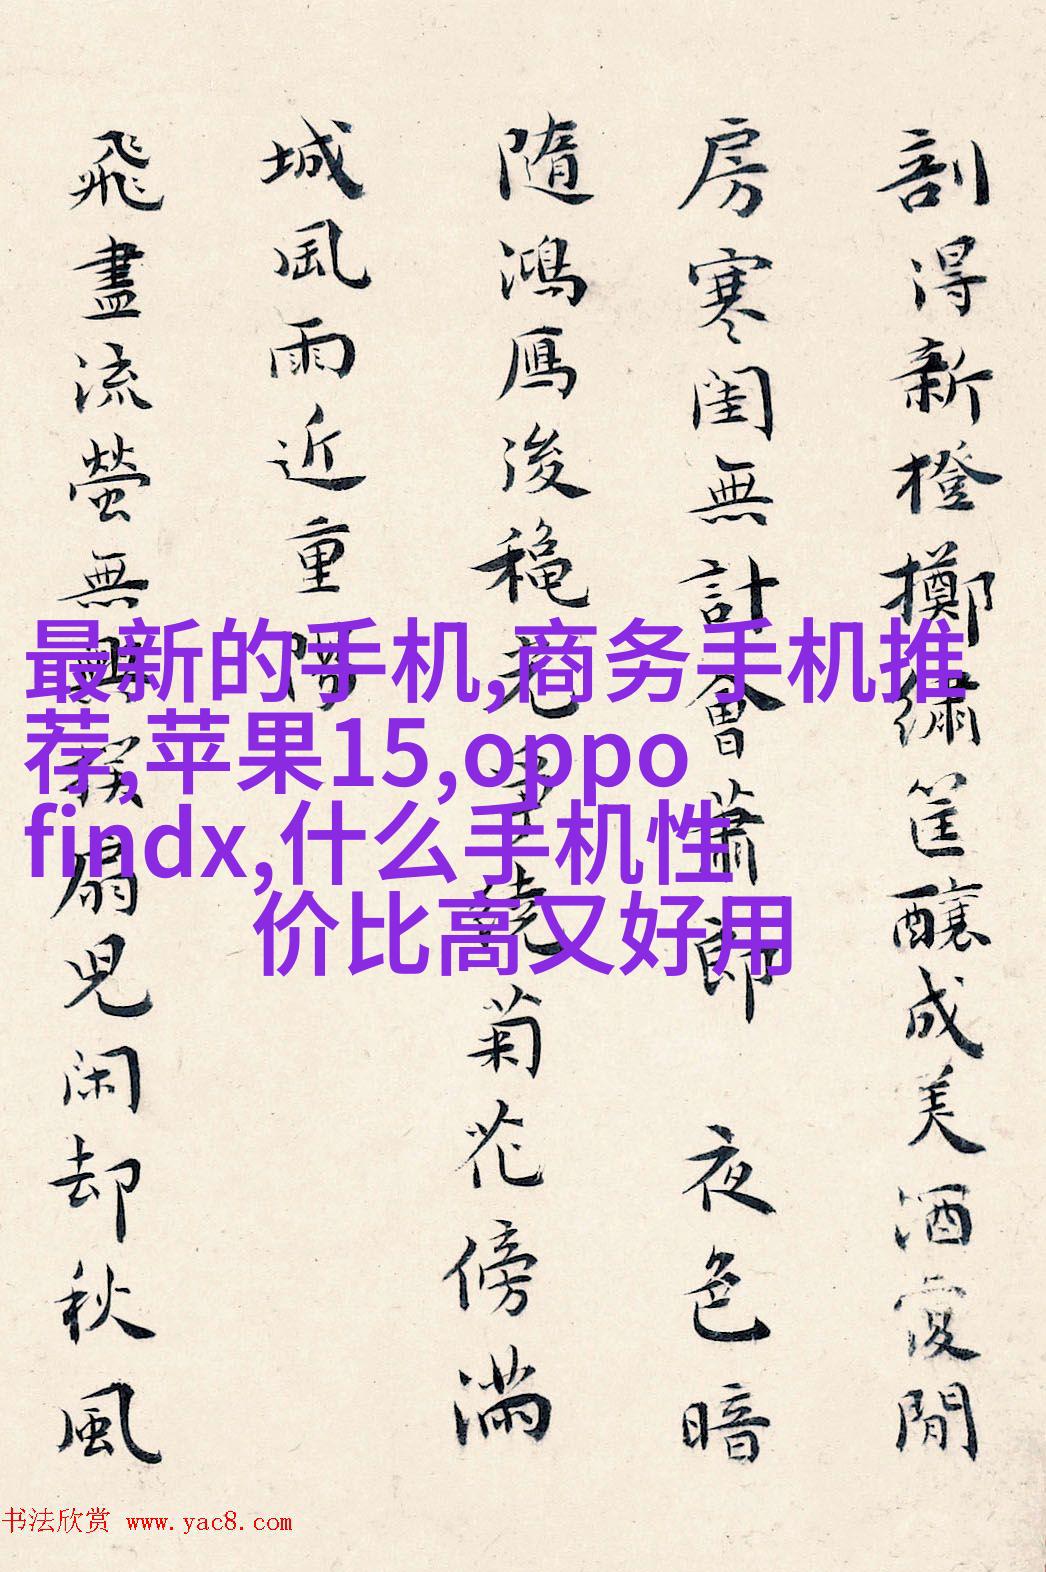 剖淂新橙擲繡筐釀成美酒愛閒
房寒閨無計會蕭郎 夜色暗
隨鴻鴈後穐老繞菊花傍滿
城風雨近重陽
飛盡流螢無撲扇兒閑却秋風
最新的手机,商务手机推
荐,苹果15,oppo
findx,什么手机性
价比高又好用
书法欣赏 www.yac8.com